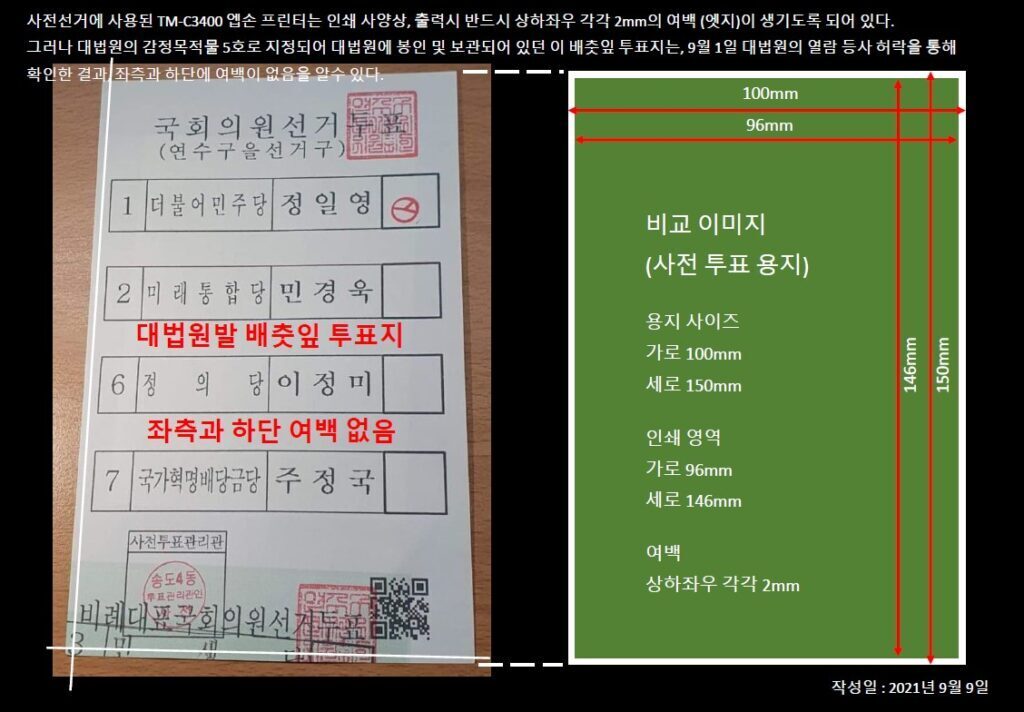 사전선거에 사용된 TM-C3400 엡손 프린터는 인쇄 사양상, 출력시 반드시 상하좌우 각각 2mm의 여백 (엣지)이 생기도록 되어 있다.
그러나 대법원의 감정목적물 5호로 지정되어 대법원에 봉인 및 보관되어 있던 이 배춧잎 투표지는, 9월 1일 대법원의 열람 등사 허락을 통해
확인한 결과, 좌측과 하단에 여백이 없음을 알수 있다.
국회의원선거투표
(연수구을선거구)
1 더불어민주당 정일영
2 미래통합당 민경욱
대법원발 배춧잎 투표지
6 정의당 이정미
좌측과 하단 여백 없음
7 국가혁명배당금당 주정국
사전투표관리관
송도4동
투표관리관인
비례대표국회의원선거투표
3 민 생
100mm
96mm
비교 이미지
(사전 투표 용지)
용지 사이즈
가로 100mm
세로 150mm
인쇄 영역
가로 96mm
세로 146mm
여백
상하좌우 각각 2mm
146mm
150mm
작성일 : 2021년 9월 9일